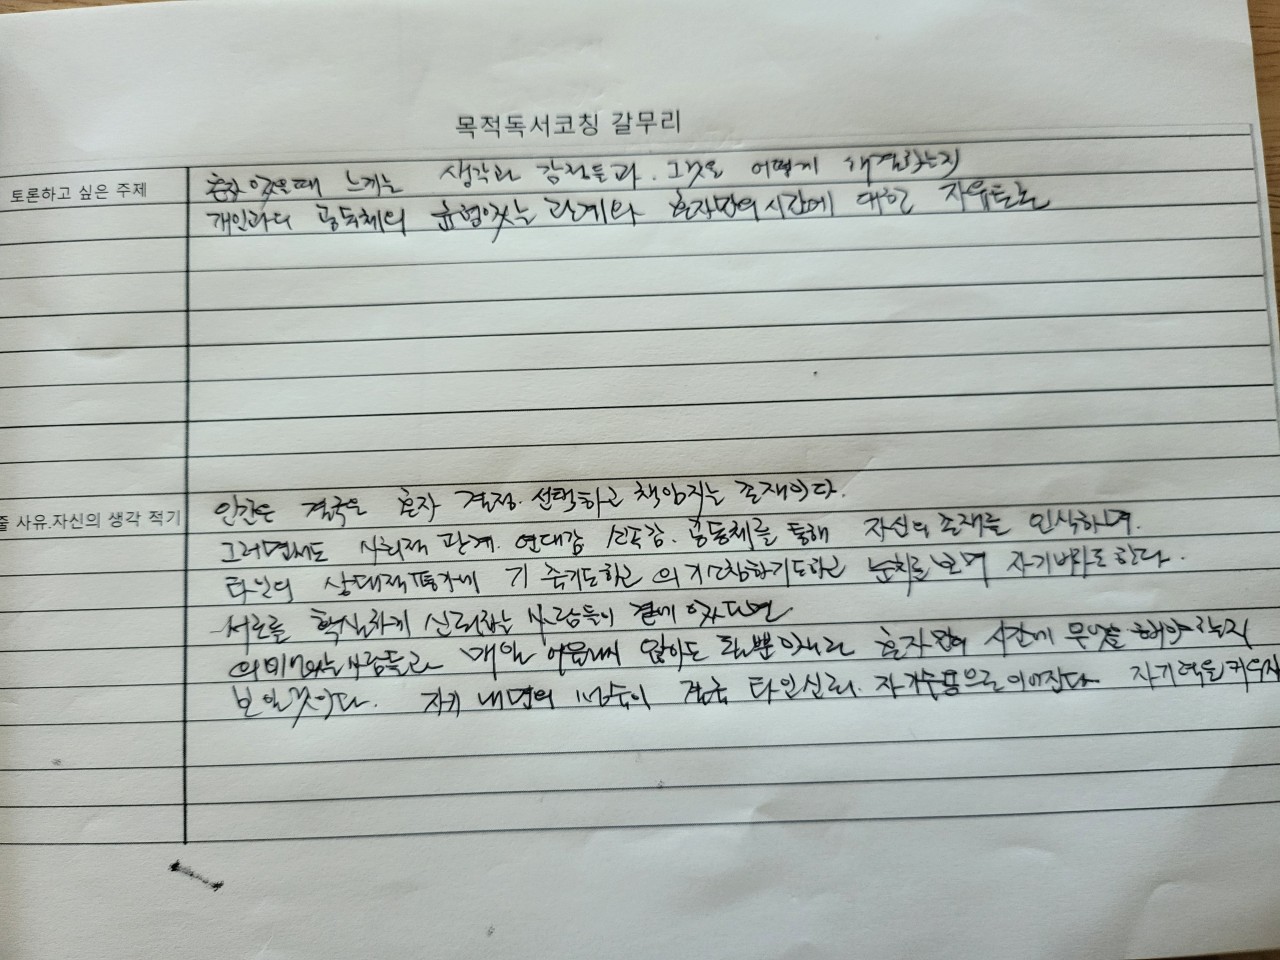 목적독서코칭 갈무리
토론하고 싶은 주제
혼자 있을때 느끼는 생각과 감정들과. 그것을 어떻게 해결하는지
개인과의 공동체의 균형있는 관계와 혼자만의 시간에 대한 자유토론
줄 사유.자신의 생각 적기
인간은 결국은 혼자 결정. 선택하고 책임지는 존재이다.
그러면서도 사회적 관계. 연대감 소속감. 공동체를 통해 자신의 존재를 인식하며.
타인의 상대적평가에 기 죽기도하고 의기소침하기도하고 눈치를 보며 자기비하를 한다.
서로를 확실하게 신뢰하는 사람들이 곁에 있다면
의미있는 사람들과 매일 어울려서 않아도 될뿐아니라 혼자만의 시간에 무엇을 해야하는지
보일것이다. 자기 내면의 성숙이 결국 타인신뢰. 자기수용으로 이어진다. 자기력을 키우자